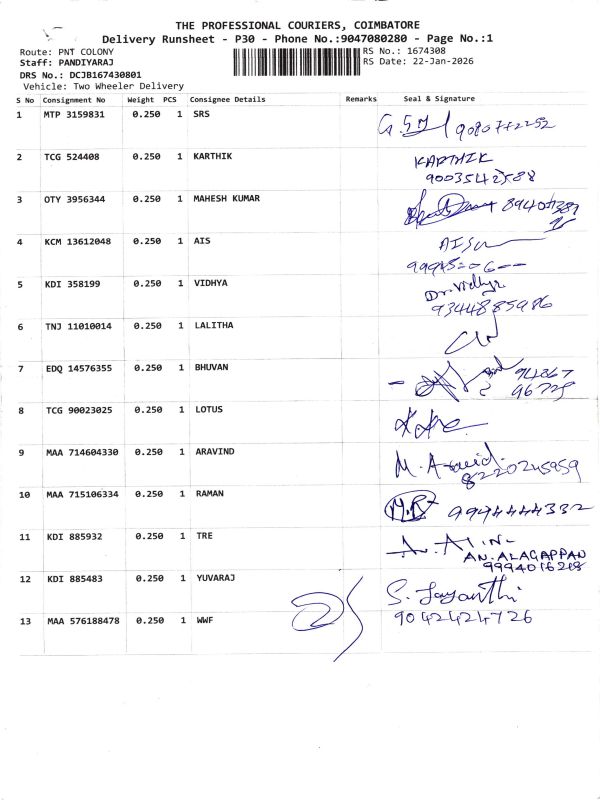 THE PROFESSIONAL COURIERS, COIMBATORE
Delivery Runsheet - P30 - Phone No.:9047080280 - Page No.:1
Route: PNT COLONY RS No.: 1674308
Staff: PANDIYARAJ RS Date: 22-Jan-2026
DRS No.: DCJB167430801
Vehicle: Two Wheeler Delivery
S No Consignment No Weight PCS Consignee Details Remarks Seal & Signature
1 MTP 3159831 0.250 1 SRS
2 TCG 524408 0.250 1 KARTHIK KARTHIK
9003542588
3 OTY 3956344 0.250 1 MAHESH KUMAR
4 KCM 13612048 0.250 1 AIS
5 KDI 358199 0.250 1 VIDHYA Dr. Vidhya
9344885986
6 TNJ 11010014 0.250 1 LALITHA
7 EDQ 14576355 0.250 1 BHUVAN 94867
96725
8 TCG 90023025 0.250 1 LOTUS
9 MAA 714604330 0.250 1 ARAVIND M. Aravid.
8220245959
10 MAA 715106334 0.250 1 RAMAN M.R 9994444332
11 KDI 885932 0.250 1 TRE
AN. ALAGAPPAN
9994016218
12 KDI 885483 0.250 1 YUVARAJ S. Jayanthi
13 MAA 576188478 0.250 1 WWF 9042424726